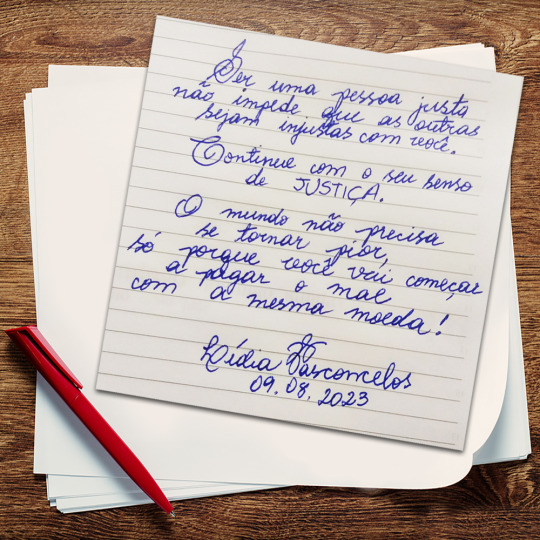 Ser uma pessoa justa
não impede que as outras
sejam injustas com você.
Continue com o seu senso
de JUSTIÇA.
O mundo não precisa
se tornar pior,
só porque você vai começar
a pagar o mal
com a mesma moeda!
Lídia Vasconcelos
09.08.2023